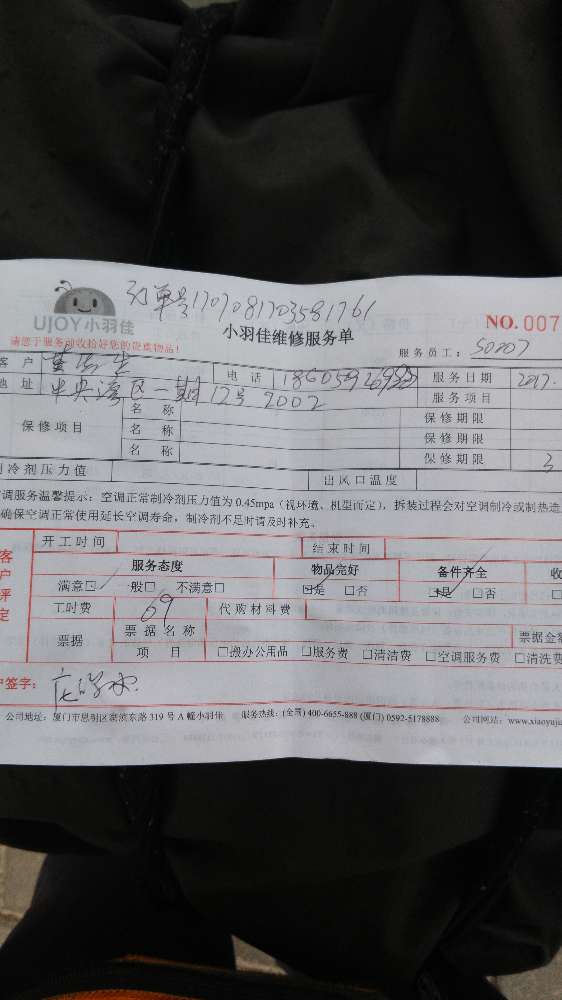 订单号1707081703581761
UJOY小羽佳
小羽佳维修服务单
NO.007
请您于服务前收拾好您的贵重物品！
服务员工：S0207
客 户 电 话 服务日期 2017.
地 址 中央湾区一期12号2002 服务项目
保修项目 名 称 保修期限
名 称 保修期限
名 称 保修期限 3
制冷剂压力值 出风口温度
调服务温馨提示：空调正常制冷剂压力值为0.45mpa（视环境、机型而定），拆装过程会对空调制冷或制热造
确保空调正常使用延长空调寿命，制冷剂不足时请及时补充。
客户评定
开工时间 结束时间
服务态度 物品完好 备件齐全 收
满意☑ 一般□ 不满意□ ☑是 □否 ☑是 □否
工时费 69 代购材料费
票据 票据名称 票据金额
项 目 □搬办公用品 □服务费 □清洁费 □空调服务费 □清洗费
户签字：
公司地址：厦门市思明区湖滨东路319号A幢小羽佳 服务热线：(全需) 400-6655-888 (厦门) 0592-5178888 公司网站：www.xiaoyujia